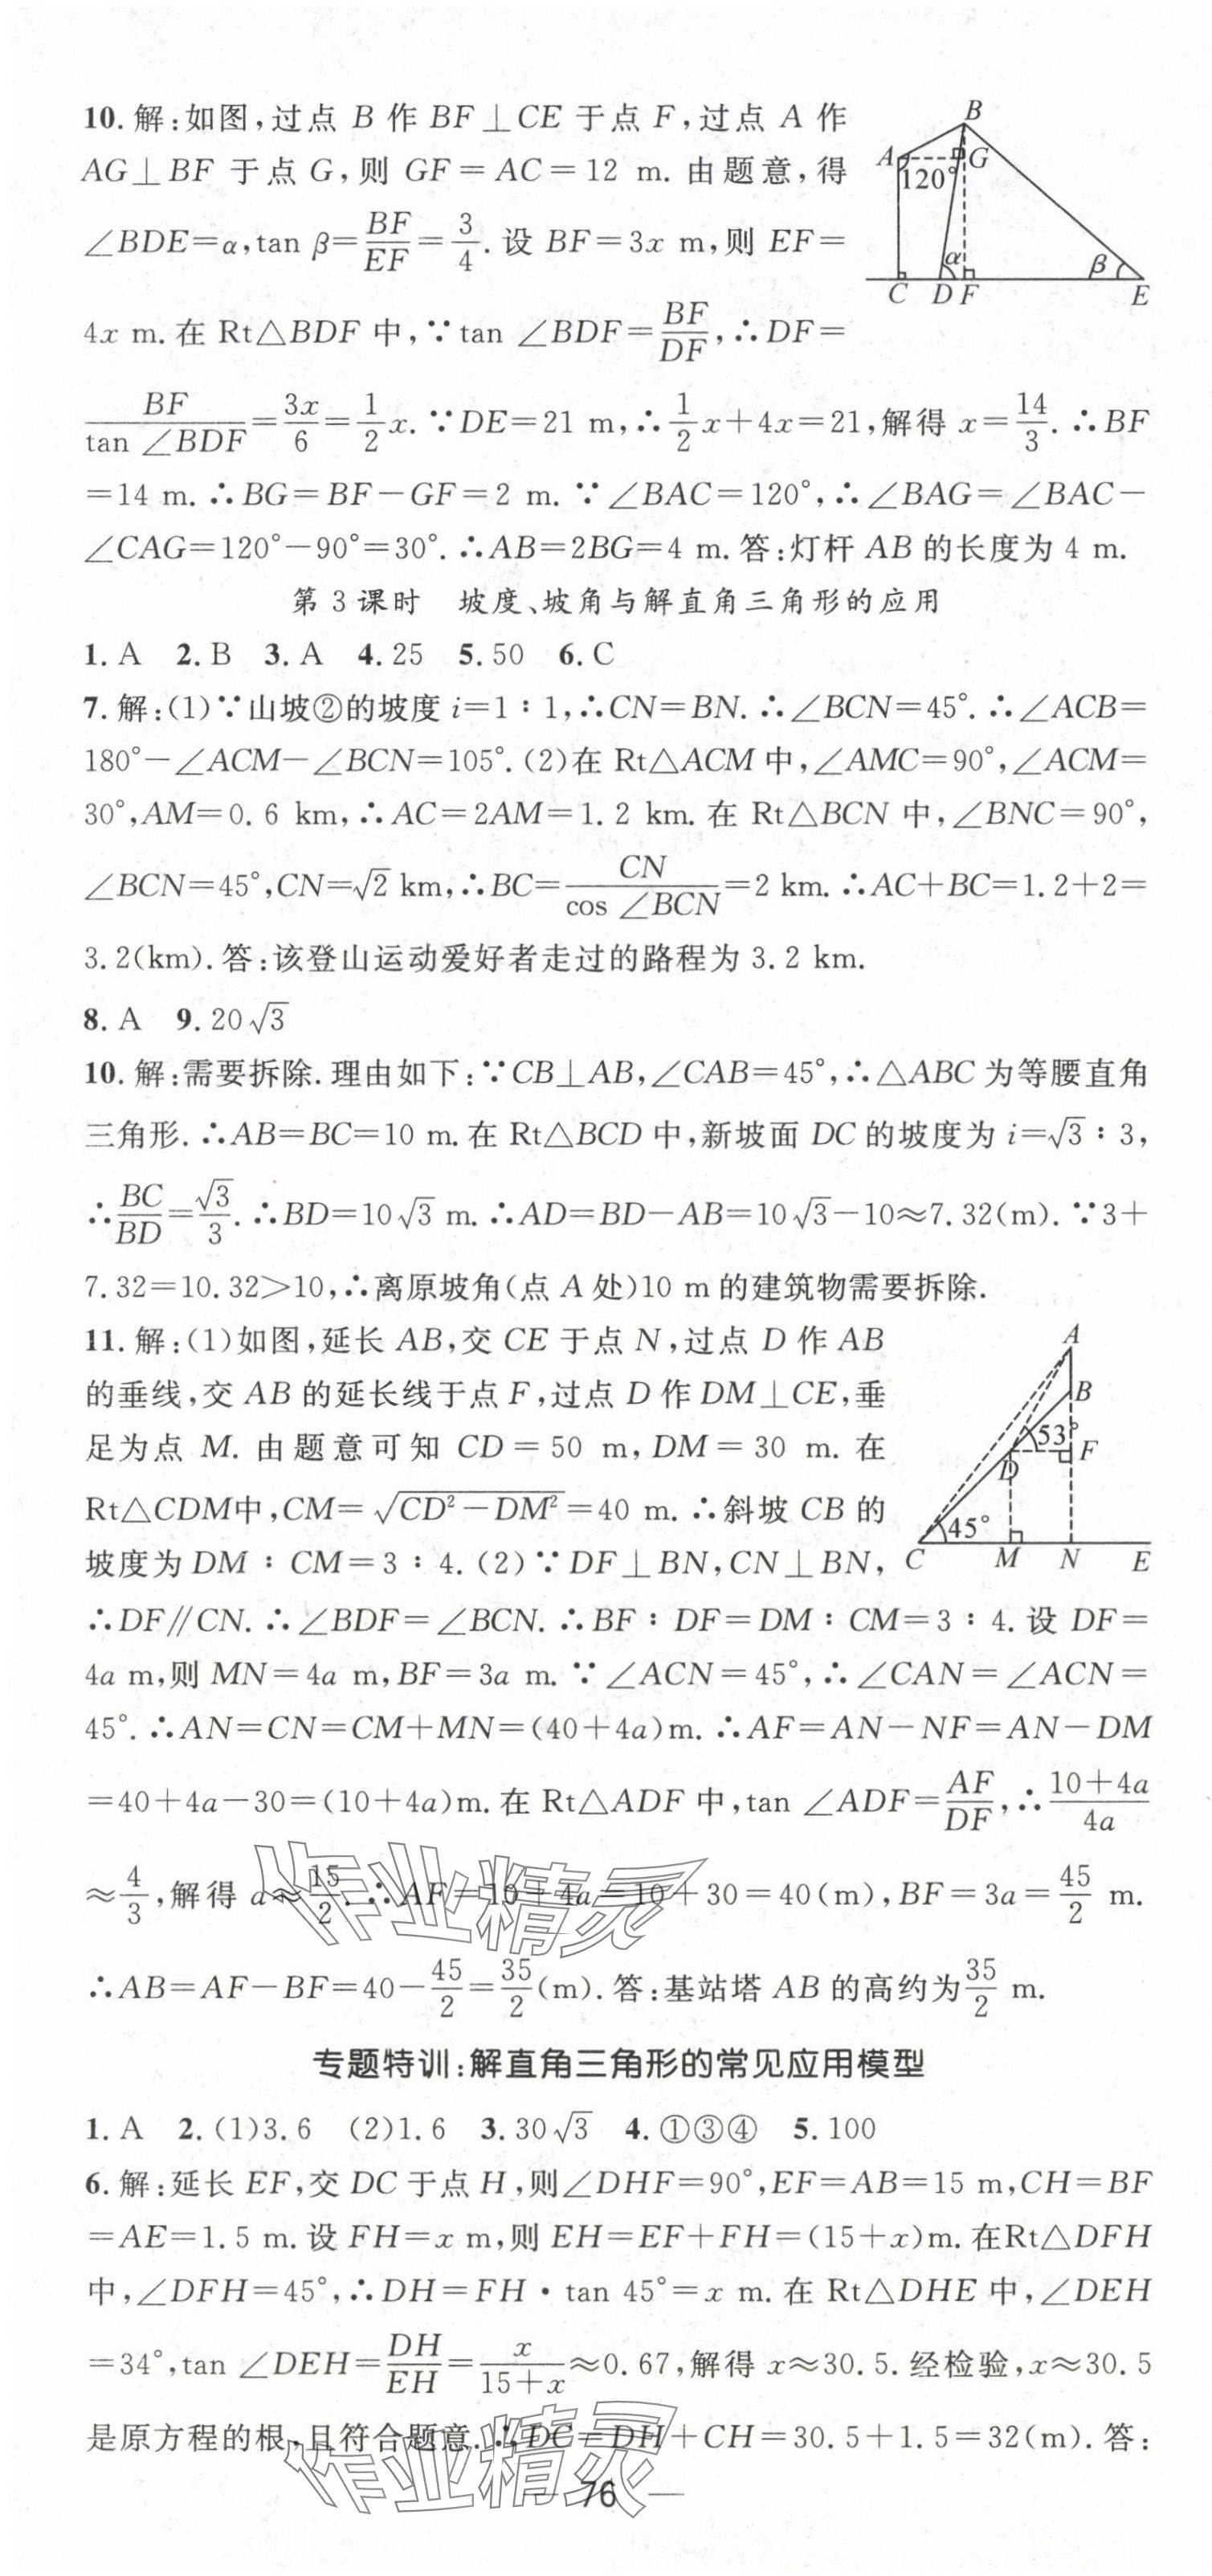 10. 解:如图,过点 B 作 BF⊥CE 于点 F,过点 A 作
AG⊥BF 于点 G,则 GF=AC=12 m. 由题意,得
∠BDE=α,tan β=BF/EF=3/4. 设 BF=3x m,则 EF=
4x m. 在 Rt△BDF 中,∵tan ∠BDF=BF/DF,∴DF=
BF/tan ∠BDF=3x/6=1/2x. ∵DE=21 m,∴1/2x+4x=21,解得 x=14/3. ∴BF
=14 m. ∴BG=BF-GF=2 m. ∵∠BAC=120°,∴∠BAG=∠BAC-
∠CAG=120°-90°=30°. ∴AB=2BG=4 m. 答:灯杆 AB 的长度为 4 m.
B
A
G
120°
α
β
C D F E
第 3 课时 坡度、坡角与解直角三角形的应用
1. A 2. B 3. A 4. 25 5. 50 6. C
7. 解:(1)∵山坡②的坡度 i=1∶1,∴CN=BN. ∴∠BCN=45°. ∴∠ACB=
180°-∠ACM-∠BCN=105°. (2)在 Rt△ACM 中,∠AMC=90°,∠ACM=
30°,AM=0. 6 km,∴AC=2AM=1. 2 km. 在 Rt△BCN 中,∠BNC=90°,
∠BCN=45°,CN=√2 km,∴BC=CN/cos ∠BCN=2 km. ∴AC+BC=1. 2+2=
3. 2(km). 答:该登山运动爱好者走过的路程为 3. 2 km.
8. A 9. 20√3
10. 解:需要拆除. 理由如下:∵CB⊥AB,∠CAB=45°,∴△ABC 为等腰直角
三角形. ∴AB=BC=10 m. 在 Rt△BCD 中,新坡面 DC 的坡度为 i=√3∶3,
∴BC/BD=√3/3. ∴BD=10√3 m. ∴AD=BD-AB=10√3-10≈7. 32(m). ∵3+
7. 32=10. 32>10,∴离原坡角(点 A 处)10 m 的建筑物需要拆除.
11. 解:(1)如图,延长 AB,交 CE 于点 N,过点 D 作 AB
的垂线,交 AB 的延长线于点 F,过点 D 作 DM⊥CE,垂
足为点 M. 由题意可知 CD=50 m,DM=30 m. 在
Rt△CDM中,CM=√(CD²-DM²)=40 m. ∴斜坡 CB 的
坡度为 DM∶CM=3∶4. (2)∵DF⊥BN,CN⊥BN,
∴DF∥CN. ∴∠BDF=∠BCN. ∴BF∶DF=DM∶CM=3∶4. 设 DF=
4a m,则 MN=4a m,BF=3a m. ∵∠ACN=45°,∴∠CAN=∠ACN=
45°. ∴AN=CN=CM+MN=(40+4a)m. ∴AF=AN-NF=AN-DM
=40+4a-30=(10+4a)m. 在 Rt△ADF 中,tan ∠ADF=AF/DF,∴(10+4a)/4a
≈4/3,解得 a≈15/2. ∴AF=10+4a=10+30=40(m),BF=3a=45/2 m.
∴AB=AF-BF=40-45/2=35/2(m). 答:基站塔 AB 的高约为35/2 m.
A
B
53°
F
D
45°
C M N E
专题特训:解直角三角形的常见应用模型
1. A 2. (1)3. 6 (2)1. 6 3. 30√3 4. ①③④ 5. 100
6. 解:延长 EF,交 DC 于点 H,则∠DHF=90°,EF=AB=15 m,CH=BF
=AE=1. 5 m. 设 FH=x m,则 EH=EF+FH=(15+x)m. 在Rt△DFH
中,∠DFH=45°,∴DH=FH·tan 45°=x m. 在 Rt△DHE 中,∠DEH
=34°,tan ∠DEH=DH/EH=x/(15+x)≈0. 67,解得 x≈30. 5. 经检验,x≈30. 5
是原方程的根,且符合题意. ∴DC=DH+CH=30. 5+1. 5=32(m). 答:
— 76 —
作业精灵
作业精灵